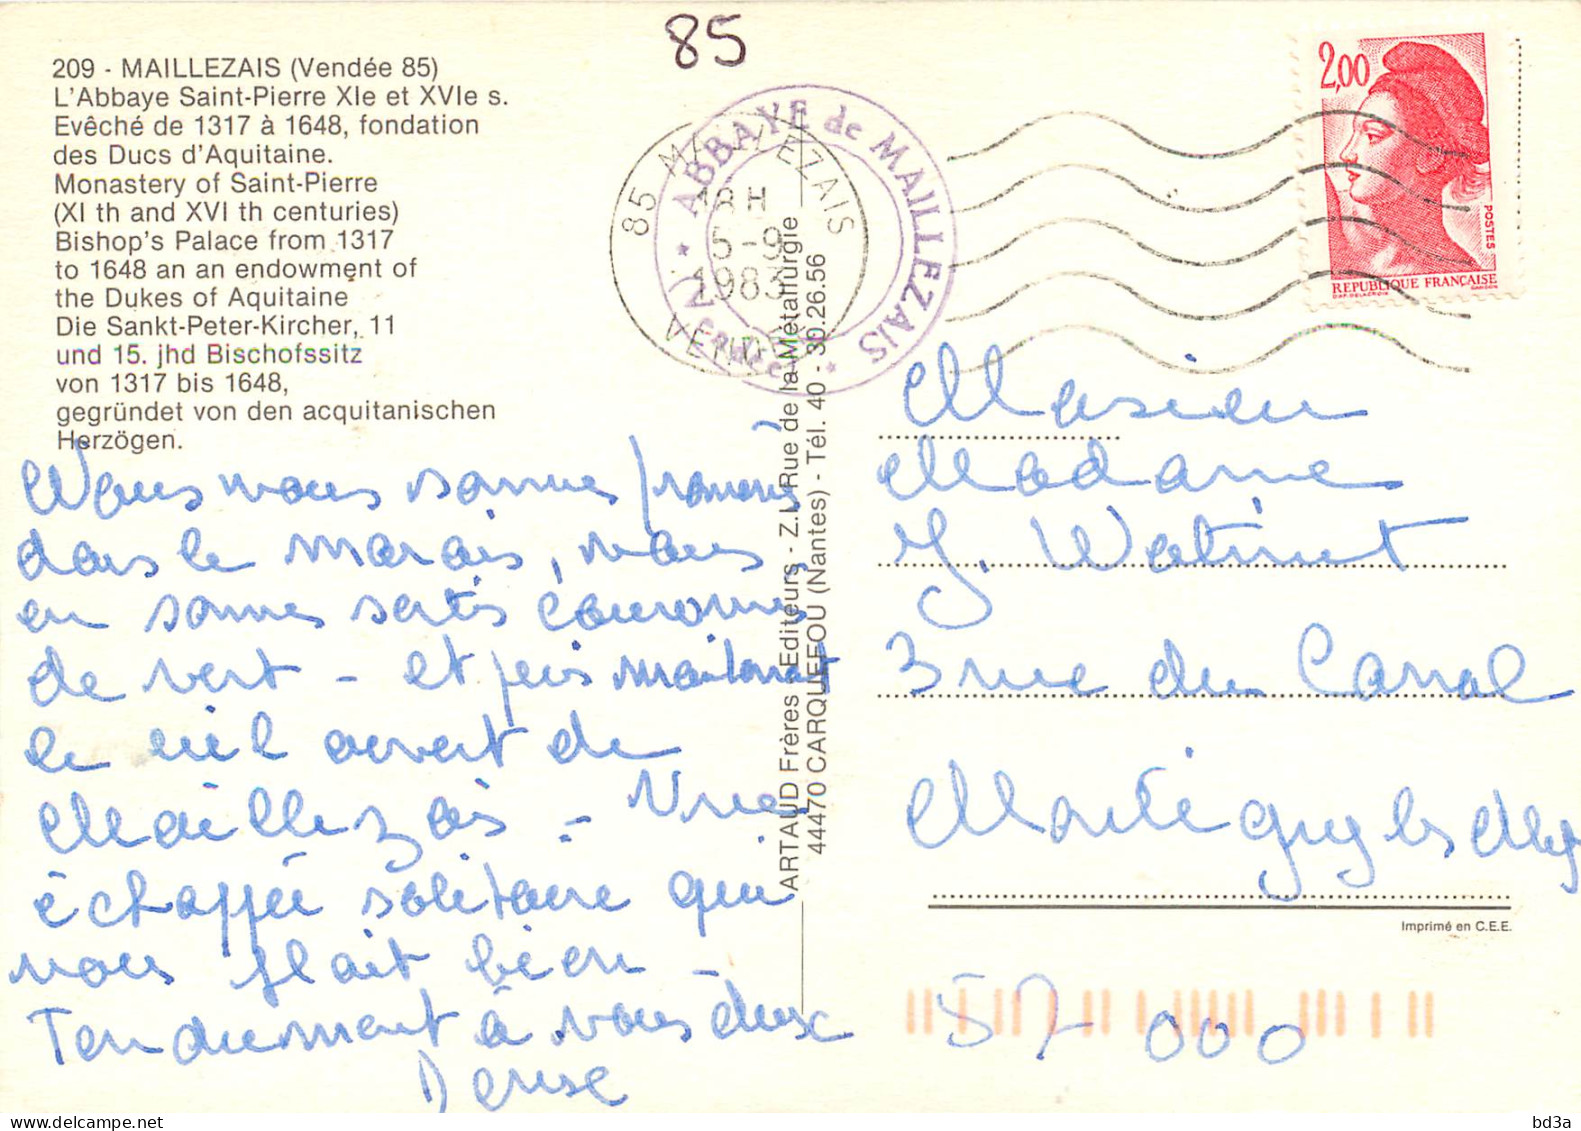 85
209 - MAILLEZAIS (Vendée 85)
L'Abbaye Saint-Pierre XIe et XVIe s.
Evêché de 1317 à 1648, fondation
des Ducs d'Aquitaine.
Monastery of Saint-Pierre
(XI th and XVI th centuries)
Bishop's Palace from 1317
to 1648 an an endowment of
the Dukes of Aquitaine
Die Sankt-Peter-Kircher, 11
und 15. jhd Bischofssitz
von 1317 bis 1648,
gegründet von den acquitanischen
Herzögen.
Nous nous sommes promenés
dans le marais, nous
en sommes sortis couronnés
de vert - et puis maintenant
le ciel ouvert de
Maillezais - Une
échappée solitaire qui
nous plait bien -
Tendrement à vous deux
Denise
85 MAILLEZAIS
18H
5-9
1983
VENDEE
ABBAYE de MAILLEZAIS
* (Vendée) *
ARTAUD Frères Editeurs - Z.I. Rue de la Métallurgie
44470 CARQUEFOU (Nantes) - Tél. 40 - 30.26.56
2,00
POSTES
REPUBLIQUE FRANÇAISE
D'AP. DELACROIX GANDON
Masieu
Madame
J. Watinet
3 rue du Canal
Montigny les Metz
Imprimé en C.E.E.
57 000